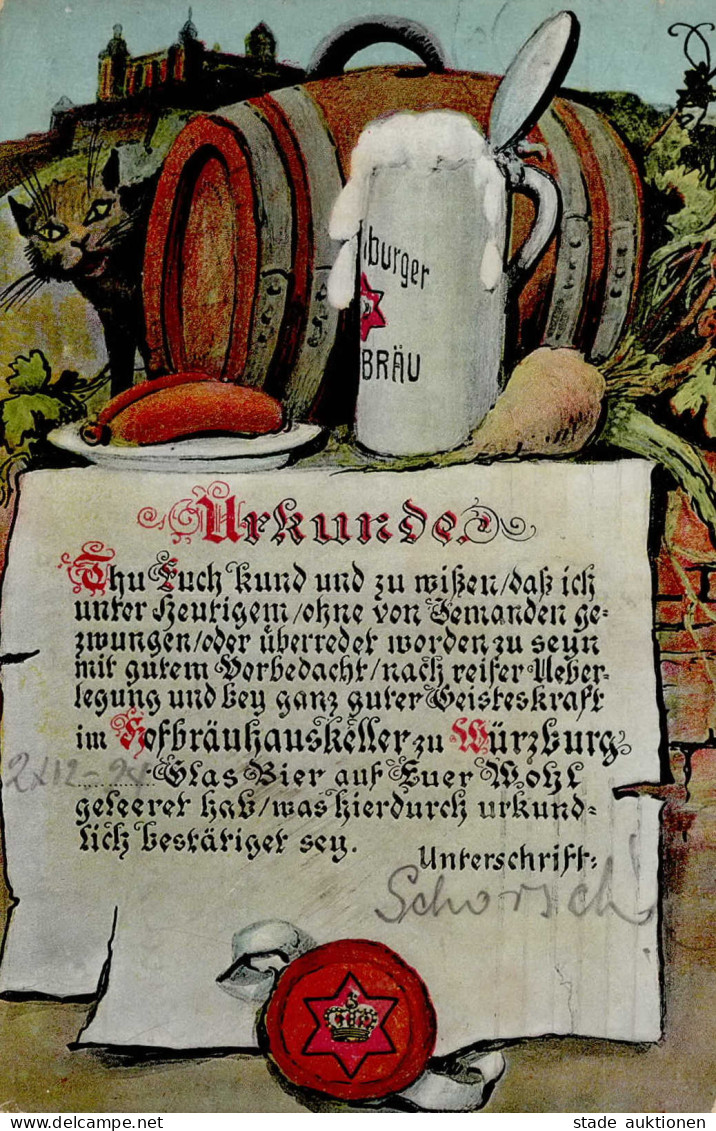 burger
BRÄU
Urkunde.
Thu Euch kund und zu wißen/daß ich
unter heutigem/ohne von Jemanden ge-
zwungen/oder überredet worden zu seyn
mit gutem Vorbedacht/nach reifer Ueber-
legung und bey ganz guter Geisteskraft
im Hofbräuhauskeller zu Würzburg
2x12 = 24 Glas Bier auf Euer Wohl
geleeret hab/was hierdurch urkund-
lich bestätiget sey.
Unterschrift:
Schorsch
stade auktionen